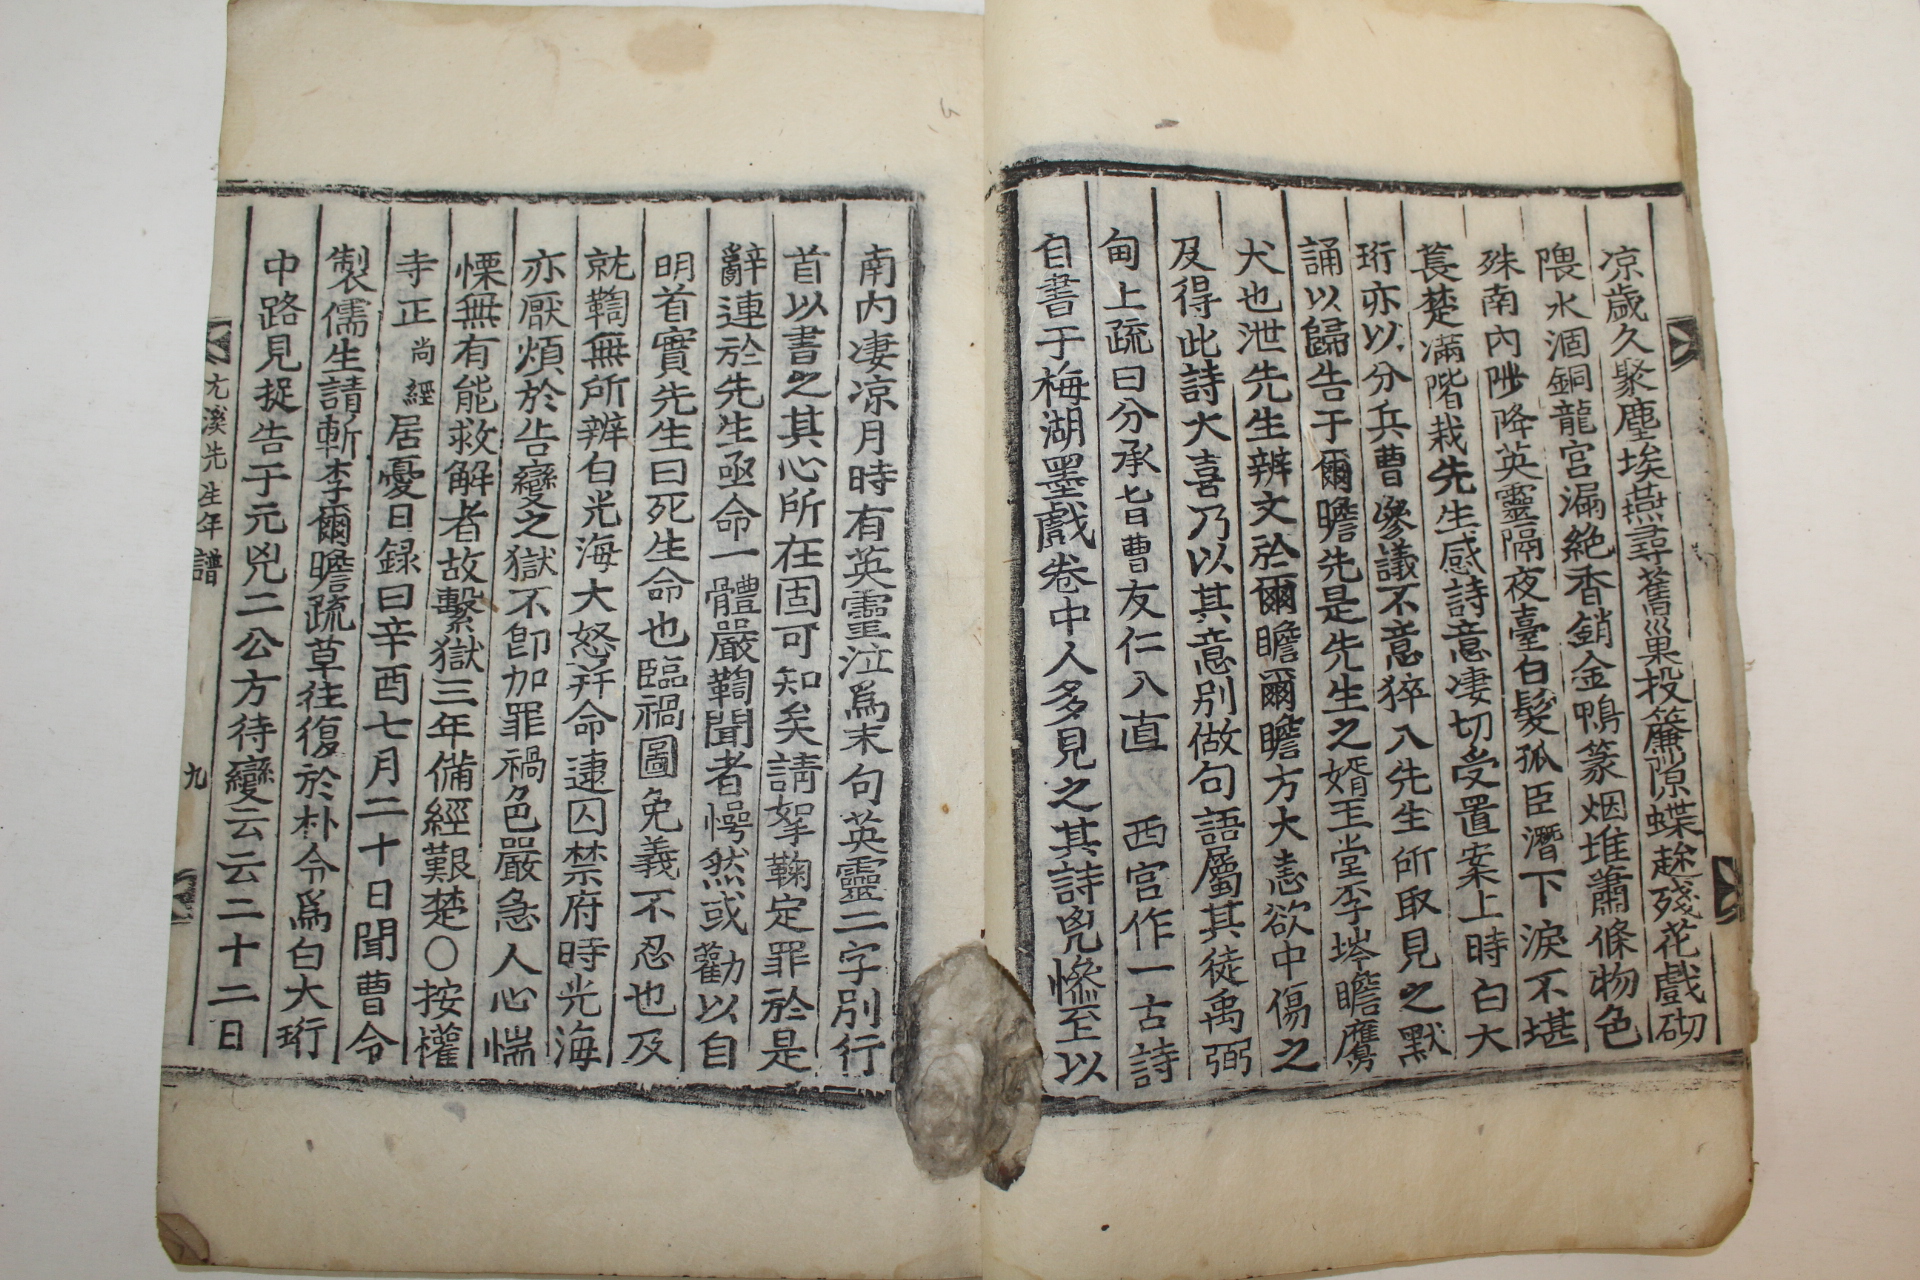 凉歲久聚塵埃燕尋舊巢投簾隙蝶趂殘花戲砌
隈水涸銅龍宮漏絶香銷金鴨篆烟堆蕭條物色
殊南內陟降英靈隔夜臺白髮孤臣潛下淚不堪
萇楚滿階栽先生感詩意凄切受置案上時白大
珩亦以分兵曹參議不意猝入先生所取見之默
誦以歸告于爾瞻先是先生之婿王堂李埁瞻鷹
犬也泄先生辨文於爾瞻爾瞻方大恚欲中傷之
及得此詩大喜乃以其意別做句語屬其徒禹弼
甸上疏曰分承旨曹友仁入直 西宮作一古詩
自書于梅湖墨戲卷中人多見之其詩兇慘至以
南內凄凉月時有英靈泣爲末句英靈二字別行
首以書之其心所在固可知矣請拏鞠定罪於是
辭連於先生亟命一體嚴鞫聞者愕然或勸以自
明首實先生曰死生命也臨禍圖免義不忍也及
就鞫無所辨白光海大怒幷命逮囚禁府時光海
亦厭煩於告變之獄不卽加罪禍色嚴急人心惴
慄無有能救解者故繫獄三年備經艱楚○按權
寺正尙經居憂日録曰辛酉七月二十日聞曹令
製儒生請斬李爾瞻疏草往復於朴令爲白大珩
中路見捉告于元兇二公方待變云云二十二日
尤溪先生年譜 九